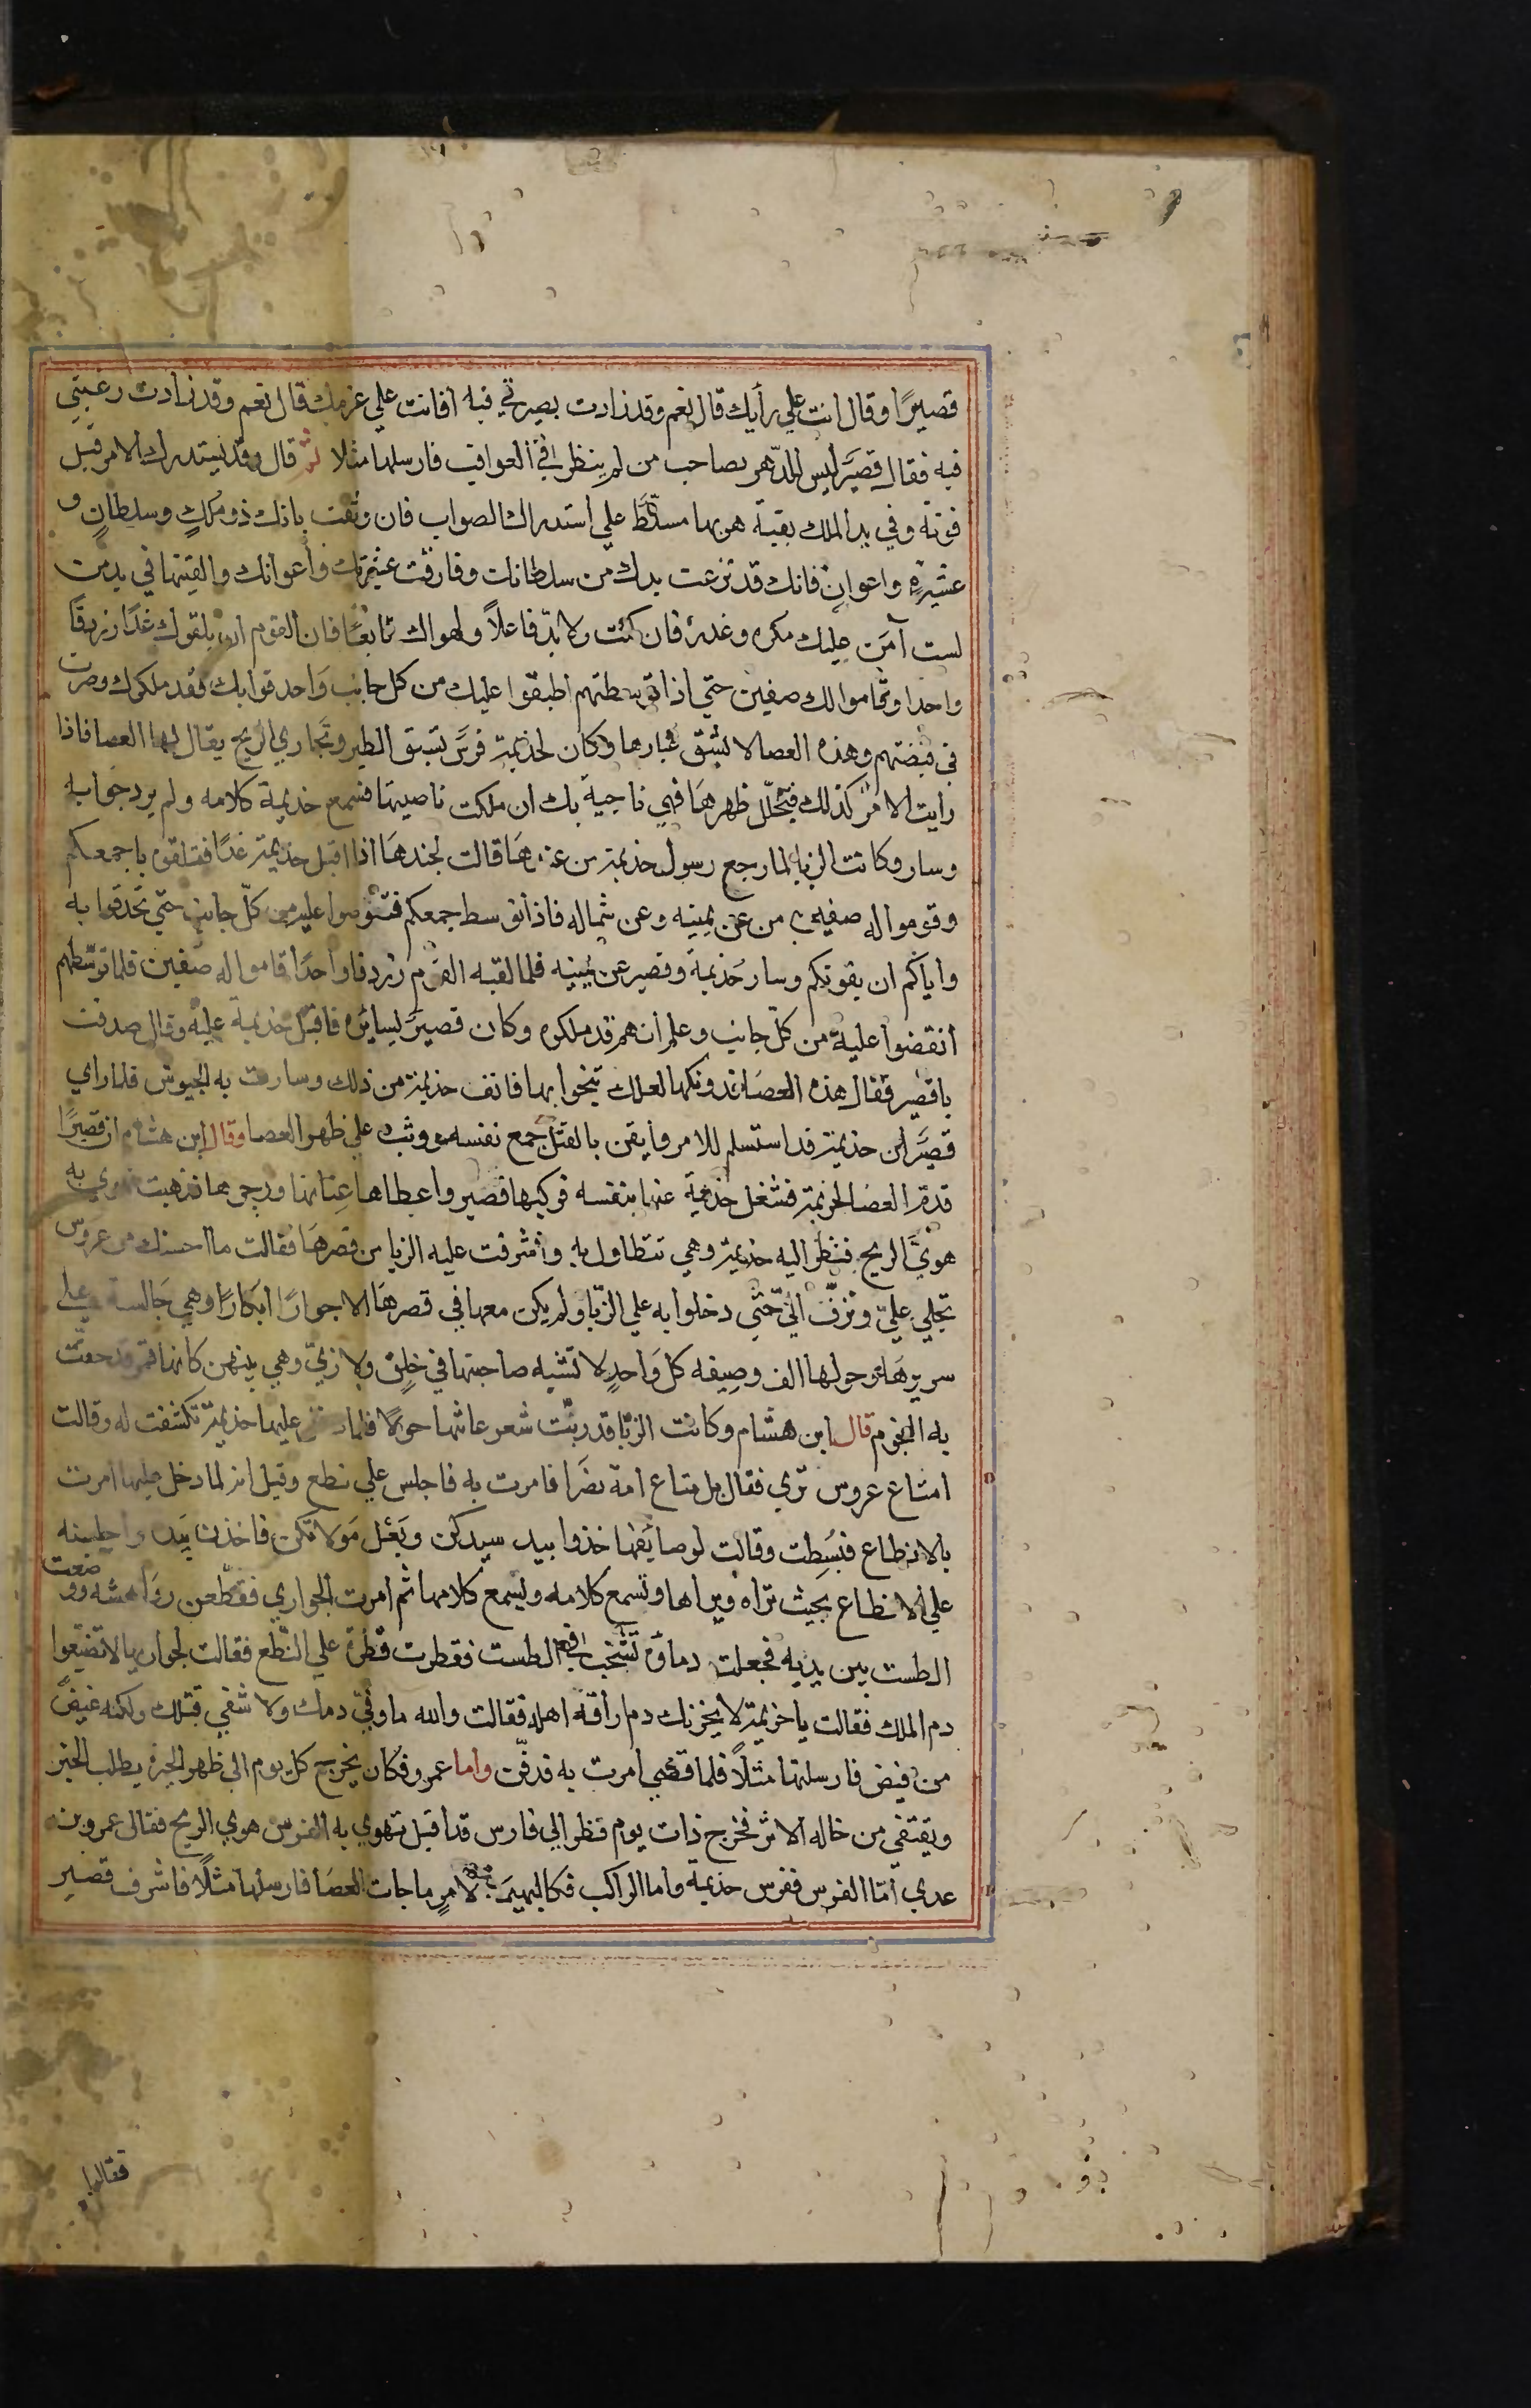 قصيرًا وقال انت علي رأيك قال نعم وقد زادت بصيرتي فيه افانت علي عزمك قال نعم وقد زادت رغبتي
فيه فقال قصيَر ليس للدّهر بصاحب من لم ينظر في العواقب فارسلها مثلا ثم قال وقد يستدرك الامر قبل
فوته وفي يد الملك بقية هو بها مسلّطَ علي استدراك الصواب فان وثقت بانك ذو ملكٍ وسلطانٍ و
عشيرةٍ واعوانٍ فانك قد نزعت يدك من سلطانك وفارقت عشيرتك واعوانك والقيتها في يد من
لست آمَن عليك مكره وغدره فان كنت ولا بدّ فاعلاً ولهواك تابعًا فان القوم ان يلقوك غدًا زردقًا
واحدا وقاموا لك صفين حتي اذا توسطتهم اطبقوا عليك من كل جانب واحدقوا بك فقد ملكوك وصرت
في قبضتهم وهذه العصا لا يشق غبارها وكان لجذيمة فرسَ تسبق الطير وتجاري الريح يقال لها العصا فاذا
رايت الامر كذلك فتجلّل ظهرهَا فهي ناجية بك ان ملكت ناصيتها فسمع خذيمة كلامه ولم يرد جوابه
وسار وكانت الزبا لما رجع رسول خذيمة من عندهَا قالت لجندهَا اذا اقبل خذيمة غدًا فتلقوه باجمعكم
وقوموا له صفين من عن يمينه وعن شماله فاذا توسط جمعكم فتقوضوا عليه من كلّ جانب حتي تحدقوا به
واياكم ان يفوتكم وسار خُذيمة وقصير عن يمينه فلما لقيه القوم زردقا واحدًا قاموا له صفين فلما توسّطهم
انقضوا عليه من كلّ جانب وعلم انهم قد ملكوه وكان قصيرَ يسايره فاقبل خذيمة عليه وقال صدقت
ياقصير فقال هذه العصَا فدونكها لعلك تنجوا بها فانف خذيمة من ذلك وسارت به الجيوش فلما راي
قصيَر ان خذيمة قد استسلم للامر وايقن بالقتل جمع نفسه ووثب علي ظهر العصا وقال ابن هشام ان قصيرًا
قدم العصا لخزيمة فشغل خذيمة عنها بنفسه فركبها قصير واعطاها عِنانها وزجرها فذهبت تهوي به
هويَّ الريح فنظر اليه خذيمة وهي تتطاول به واشرفت عليه الزبا من قصرهَا فقالت ما احسنك من عروس
تجلي عليّ وتزفّ اليّ حتّي دخلوا به علي الزبّا ولم يكن معها في قصرهَا الا جوارًا ابكارًا وهي جَالسة علي
سريرهَا وحولها الف وصيفه كل وَاحدٍ لا تشبه صاحبتها في خلقٍ ولا زيّ وهي بينهن كانها قمر قد حفت
به النجوم قال ابن هشام وكانت الزبّا قد ربّت شعر عانتها حولا فلما دخل عليها خذيمة تكشفت له وقالت
امتاع عروس تري فقال بل متاع امة بضرَا فامرت به فاجلس علي نطع وقيل انه لما دخل عليها امرت
بالانطاع فبُسِطت وقالت لوصايفها خذوا بيد سيدكن وبَعْل مَولاتكن فاخذن بيَده واجلسنه
علي الانطاع بحيث تراه ويراها وتسمع كلامه ويسمع كلامها ثم امرت الجواري فقطّعن رَواهشه ووضعت
الطست بين يديه فجعلت دماؤه تشخب في الطست فقطرت قطرة علي النّطع فقالت لجواريها لا تضيّعوا
دم الملك فقالت ياخزيمة لا يحزنك دم اراقه اهله فقالت والله ما وفيّ دمك ولا شفي قتلك ولكنه غيضَ
من فيض فارسلتها مثلاً فلما قضي امرت به فدفن واما عمرو فكان يخرج كل يوم الي ظهر الحيرة يطلب الخبر
ويقتفي من خاله الاثر فخرج ذات يوم فنظر الي فارس قد اقبل تهوي به الفرس هوي الريح فقال عمرو بن
عدي امّا الفرس ففرس خذيمة واما الراكب فكالبهيمة لامرٍ ما جات العصَا فارسلها مثلًا فاشرف قصير
فقالوا